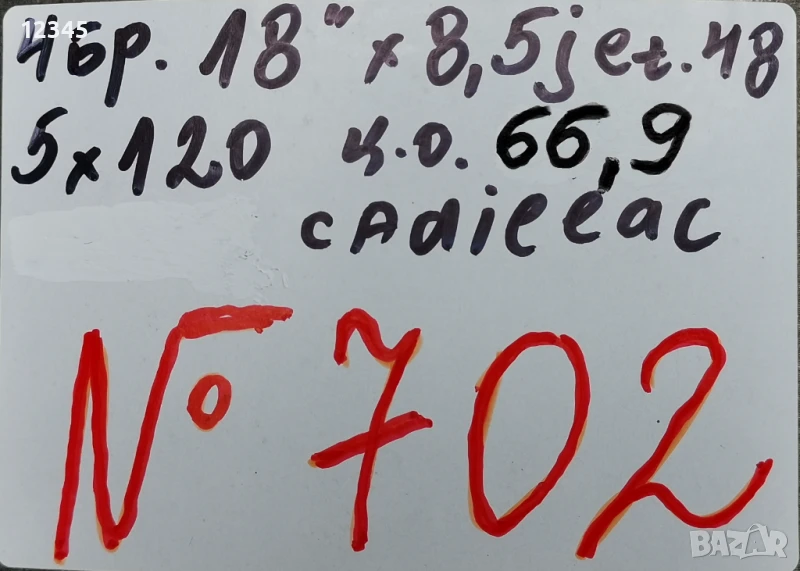 12345
4бр. 18" x 8,5j et. 48
5x120 ц.о. 66,9
cAdillac
№ 702
BAZAR